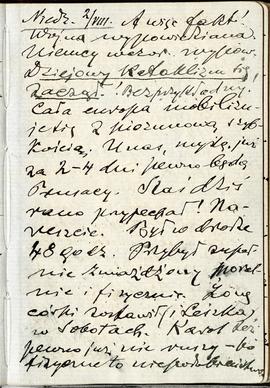 Niedz. 2/VIII. A więc fakt!
Wojna wypowiedziana.
Niemcy wczor. wypow.
Dziejowy Kataklizm się
zaczął! Bezprzykładny.
Cała europa mobilizu-
je się z piorunową szyb-
kością. U nas, myślę, już
za 2-4 dni pewno będą
Prusacy. Staś dziś
rano przyjechał! Na-
reszcie. Był w drodze
48 godz. Przybył zupeł-
nie zmiażdżony moral-
nie i fizycznie. Żonę
córki zostawił i
w Sobotach. Karol też
pewno już nie ruszy - bo
fizyczne to niepodobieństwo